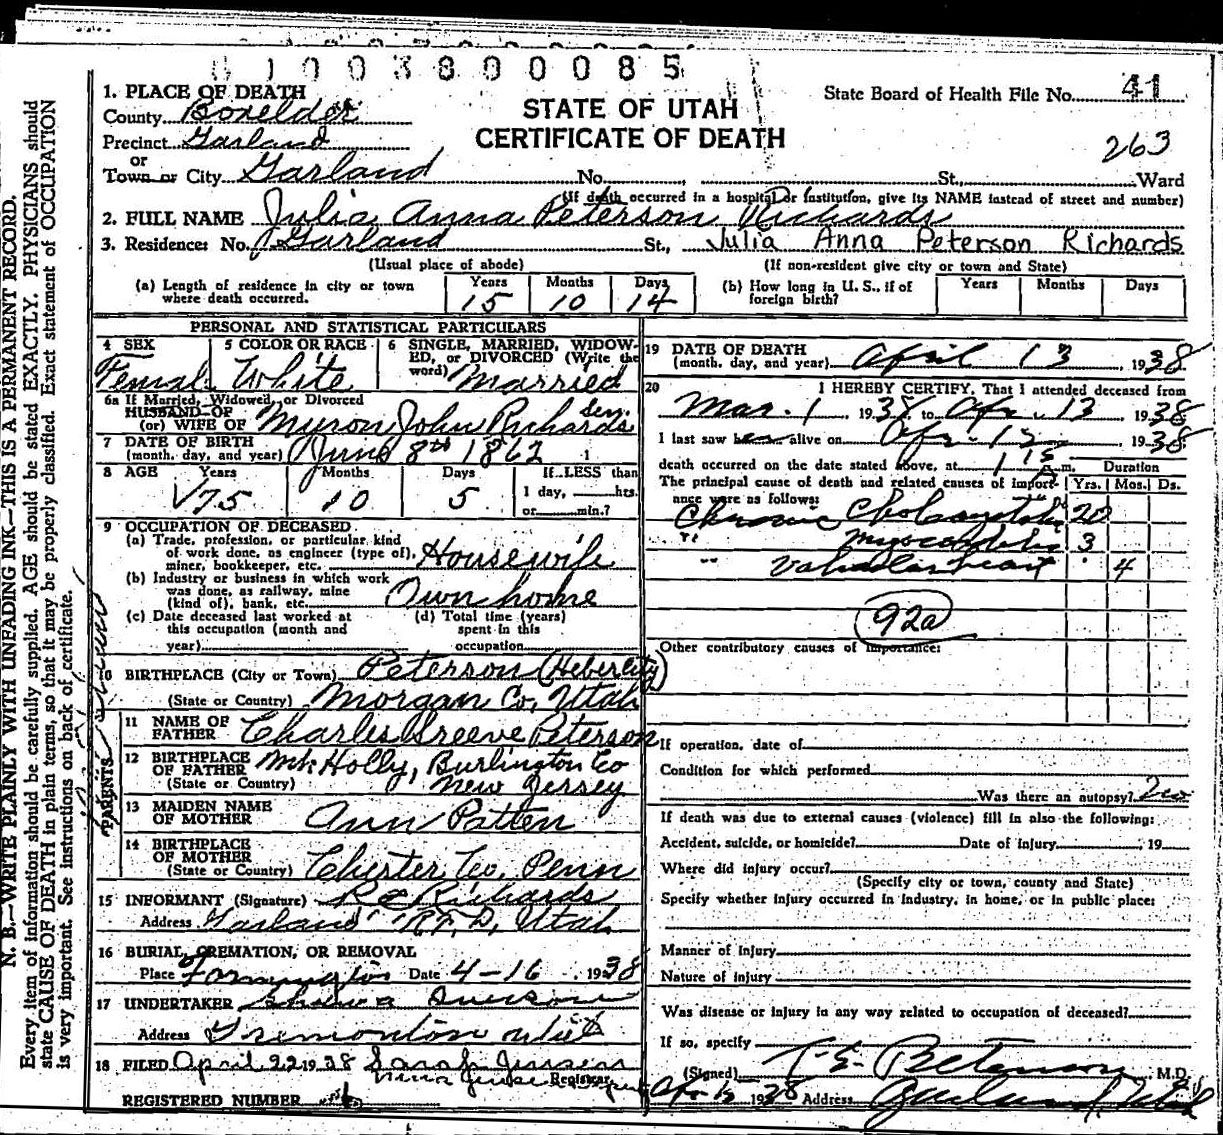 01003800085
1. PLACE OF DEATH
County Boxelder
Precinct Garland
or
Town or City Garland No. , St., Ward
STATE OF UTAH
CERTIFICATE OF DEATH
State Board of Health File No. 41
263
(If death occurred in a hospital or institution, give its NAME instead of street and number)
2. FULL NAME Julia Anna Peterson Richards
3. Residence: No. Garland St., Julia Anna Peterson Richards
(Usual place of abode) (If non-resident give city or town and State)
(a) Length of residence in city or town where death occurred. Years 15 Months 10 Days 14
(b) How long in U. S., if of foreign birth? Years Months Days
PERSONAL AND STATISTICAL PARTICULARS
4 SEX Female
5 COLOR OR RACE White
6 SINGLE, MARRIED, WIDOWED, or DIVORCED (Write the word) Married
6a If Married, Widowed, or Divorced
HUSBAND OF
(or) WIFE OF Myron John Richards Sen.
7 DATE OF BIRTH
(month, day, and year) June 8th 1862
8 AGE Years 75 Months 10 Days 5 If LESS than
1 day, hrs.
or min.?
9 OCCUPATION OF DECEASED
(a) Trade, profession, or particular kind
of work done, as engineer (type of),
miner, bookkeeper, etc. Housewife
(b) Industry or business in which work
was done, as railway, mine
(kind of), bank, etc. Own home
(c) Date deceased last worked at
this occupation (month and
year)
(d) Total time (years)
spent in this
occupation
10 BIRTHPLACE (City or Town) Peterson (Heber City)
(State or Country) Morgan Co, Utah
PARENTS
11 NAME OF
FATHER Charles Greeve Peterson
12 BIRTHPLACE
OF FATHER Mt Holly, Burlington Co
(State or Country) New Jersey
13 MAIDEN NAME
OF MOTHER Ann Patten
14 BIRTHPLACE
OF MOTHER
(State or Country) Chester Co, Penn
15 INFORMANT (Signature) Richards
Address Garland R.F.D, Utah
16 BURIAL, CREMATION, OR REMOVAL
Place Farmington Date 4-16 1938
17 UNDERTAKER
Address Tremonton Utah
18 FILED April 22 1938 Sarah Jensen
Registrar
REGISTERED NUMBER
19 DATE OF DEATH
(month, day, and year) April 13, 1938
20 I HEREBY CERTIFY, That I attended deceased from
Mar. 1, 1938 to Apr. 13 1938
I last saw her alive on Apr. 12 1938
death occurred on the date stated above, at 1 15 A m. Duration
The principal cause of death and related causes of importance were as follows: Yrs. Mos. Ds.
Chronic 20
" Myocarditis 3
" heart 4
92a
Other contributory causes of importance:
If operation, date of
Condition for which performed
Was there an autopsy? No
If death was due to external causes (violence) fill in also the following:
Accident, suicide, or homicide? Date of injury , 19
Where did injury occur?
(Specify city or town, county and State)
Specify whether injury occurred in industry, in home, or in public place:
Manner of injury
Nature of injury
Was disease or injury in any way related to occupation of deceased?
If so, specify
(Signed) M.D.
Apr 15 1938 Address Garland, Utah
N. B.—WRITE PLAINLY WITH UNFADING INK—THIS IS A PERMANENT RECORD.
Every item of information should be carefully supplied. AGE should be stated EXACTLY. PHYSICIANS should
state CAUSE OF DEATH in plain terms, so that it may be properly classified. Exact statement of OCCUPATION
is very important. See instructions on back of certificate.